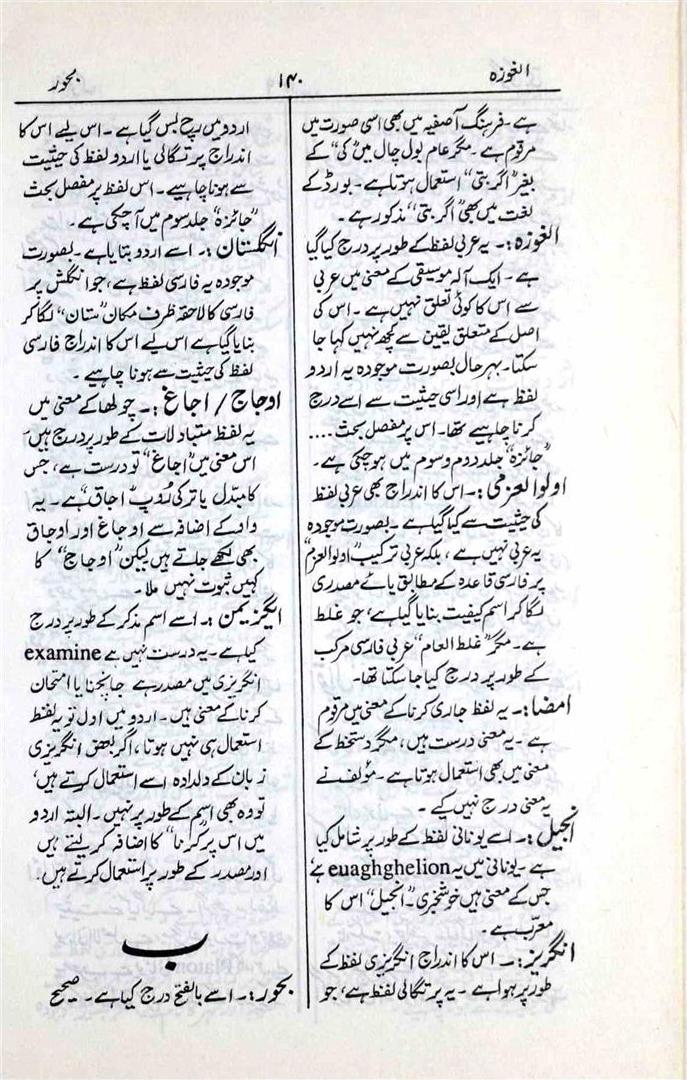 الغوزہ
۱۴۰
بخور
ہے۔ فرہنگ آصفیہ میں بھی اسی صورت میں
مرقوم ہے۔ مگر عام بول چال میں "کی" کے
بغیر "اگر بتی" استعمال ہوتا ہے۔ بورڈ کے
لغت میں بھی "اگر بتی" مذکور ہے۔
الغوزہ:۔ یہ عربی لفظ کے طور پر درج کیا گیا
ہے۔ ایک آلہ موسیقی کے معنی میں عربی
سے اس کا کوئی تعلق نہیں ہے۔ اس کی
اصل کے متعلق یقین سے کچھ نہیں کہا جا
سکتا۔ بہرحال بصورت موجودہ یہ اردو
لفظ ہے اور اسی حیثیت سے اسے درج
کرنا چاہیے تھا۔ اس پر مفصل بحث ....
"جائزہ" جلد دوم و سوم میں ہو چکی ہے۔
اولوالعزمی:۔ اس کا اندراج بھی عربی لفظ
کی حیثیت سے کیا گیا ہے۔ بصورت موجودہ
یہ عربی نہیں ہے، بلکہ عربی ترکیب "اولوالعزم"
پر فارسی قاعدہ کے مطابق یائے مصدری
لگا کر اسم کیفیت بنایا گیا ہے، جو غلط
ہے۔ مگر "غلط العام" عربی فارسی مرکب
کے طور پر درج کیا جا سکتا تھا۔
امضا:۔ یہ لفظ جاری کرنا کے معنی میں مرقوم
ہے۔ یہ معنی درست ہیں، مگر دستخط کے
معنی میں بھی استعمال ہوتا ہے۔ مؤلف نے
یہ معنی درج نہیں کیے۔
انجیل:۔ اسے یونانی لفظ کے طور پر شامل کیا
ہے۔ یونانی میں یہ euaghghelion ہے،
جس کے معنی ہیں خوشخبری۔ "انجیل" اس کا
معرّب ہے۔
انگریز:۔ اس کا اندراج انگریزی لفظ کے
طور پر ہوا ہے۔ یہ پرتگالی لفظ ہے، جو
اردو میں رچ بس گیا ہے۔ اس لیے اس کا
اندراج پرتگالی یا اردو لفظ کی حیثیت
سے ہونا چاہیے۔ اس لفظ پر مفصل بحث
"جائزہ" جلد سوم میں آ چکی ہے۔
انگلستان:۔ اسے اردو بتایا ہے۔ بصورت
موجودہ یہ فارسی لفظ ہے، جو انگلش پر
فارسی کا لاحقہ ظرف مکان "ستان" لگا کر
بنایا گیا ہے اس لیے اس کا اندراج فارسی
لفظ کی حیثیت سے ہونا چاہیے۔
اوجاج / اجاغ:۔ چولھا کے معنی میں
یہ لفظ متبادلات کے طور پر درج ہیں،
اس معنی میں "اجاغ" تو درست ہے، جس
کا مبدل یا ترکی رُوپ "اجاق" ہے۔ یہ
واو کے اضافہ سے اوجاغ اور اوجاق
بھی لکھے جاتے ہیں لیکن "اوجاج" کا
کہیں ثبوت نہیں ملا۔
ایگزیمن:۔ اسے اسم مذکر کے طور پر درج
کیا ہے۔ یہ درست نہیں ہے examine
انگریزی میں مصدر ہے جانچنا یا امتحان
کرنا کے معنی ہیں۔ اردو میں اول تو یہ لفظ
استعمال ہی نہیں ہوتا، اگر بعض انگریزی
زبان کے دلدادہ اسے استعمال کرتے ہیں،
تو وہ بھی اسم کے طور پر نہیں۔ البتہ اردو
میں اس پر "کرنا" کا اضافہ کر لیتے ہیں
اور مصدر کے طور پر استعمال کرتے ہیں۔
ب
بخور:۔ اسے بالفتح درج کیا ہے۔ صحیح